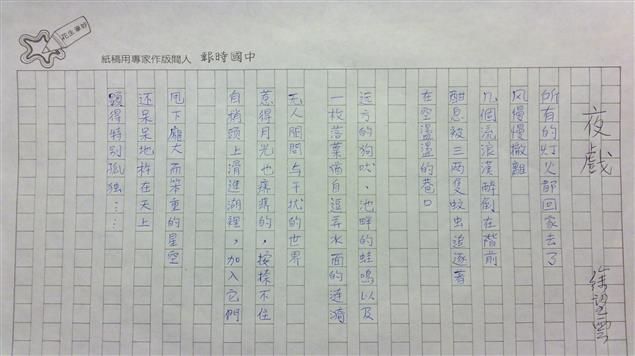 妙筆生花
中國時報 人間版作家專用稿紙
夜戲
徐望雲
所有的灯火都回家去了
风慢慢撤離
几個流浪漢醉倒在階前
酣息被三两隻蚊虫追逐著
在空盪盪的巷口
远方的狗吠、池畔的蛙鳴以及
一枚落葉獨自逗弄水面的漣漪
无人聞問与干扰的世界
惹得月光也痒痒的，按捺不住
自梢頭上滑進湖裡，加入它們
甩下龐大而笨重的星空
还呆呆地杵在天上
顯得特别孤独……